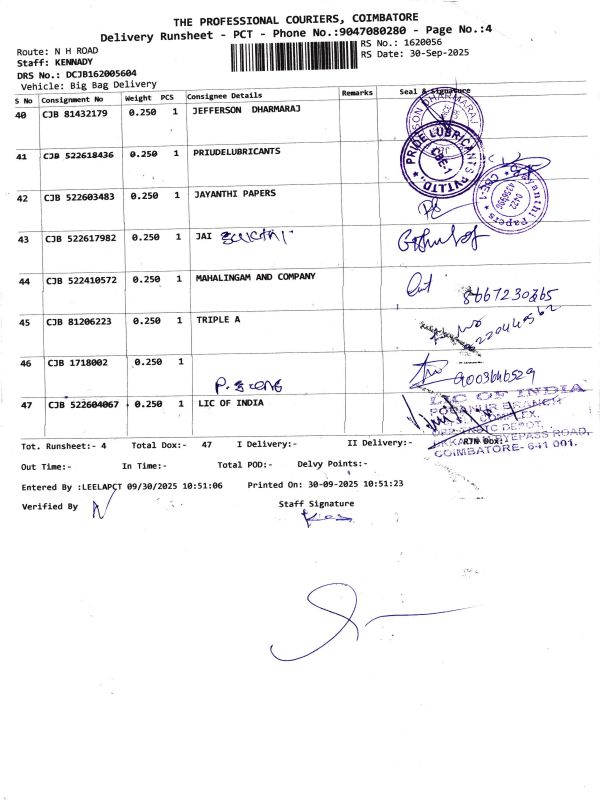 THE PROFESSIONAL COURIERS, COIMBATORE
Delivery Runsheet - PCT - Phone No.:9047080280 - Page No.:4
Route: N H ROAD
RS No.: 1620056
Staff: KENNADY
RS Date: 30-Sep-2025
DRS No.: DCJB162005604
Vehicle: Big Bag Delivery
S No Consignment No Weight PCS Consignee Details Remarks Seal & Signature
40 CJB 81432179 0.250 1 JEFFERSON DHARMARAJ
41 CJB 522618436 0.250 1 PRIUDELUBRICANTS
PRIDE LUBRICANTS PVT.LTD. CBE-1
42 CJB 522603483 0.250 1 JAYANTHI PAPERS
Jayanthi Papers CBE-1 0422
43 CJB 522617982 0.250 1 JAI
44 CJB 522410572 0.250 1 MAHALINGAM AND COMPANY
8667230365
45 CJB 81206223 0.250 1 TRIPLE A
46 CJB 1718002 0.250 1
9003646529
47 CJB 522604067 0.250 1 LIC OF INDIA
LIC OF INDIA
PODANUR BRANCH
COIMBATORE- 641 001.
Tot. Runsheet:- 4 Total Dox:- 47 I Delivery:- II Delivery:- RTN Dox:
Out Time:- In Time:- Total POD:- Delvy Points:-
Entered By :LEELAPCT 09/30/2025 10:51:06 Printed On: 30-09-2025 10:51:23
Verified By Staff Signature